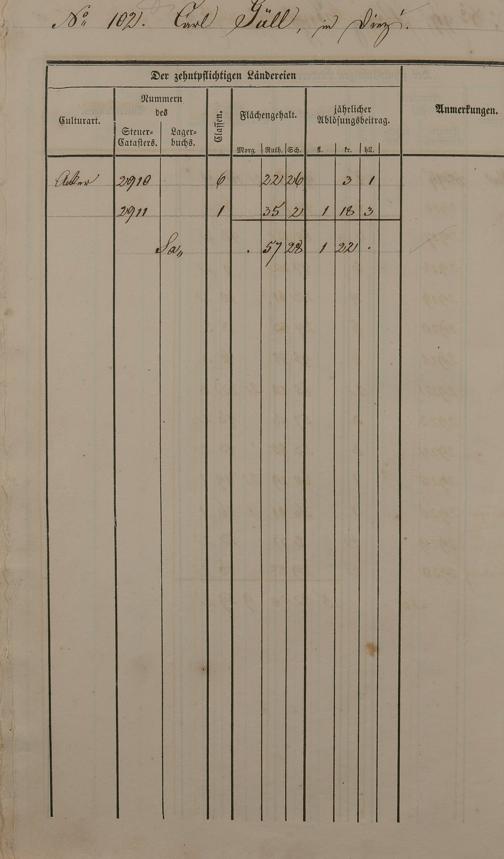 No 102. Carl Güll, in
Der zehntpflichtigen Ländereien
Culturart.
Nummern
des
Steuer-
Catasters.
Lager-
buchs.
Classen.
Flächengehalt.
Morg. Ruth. Sch.
jährlicher
Ablösungsbeitrag.
fl. kr. hll.
Anmerkungen.
Acker 2910 6 22 26 3 1
2911 1 35 2 1 18 3
Sa. . 57 28 1 22 .